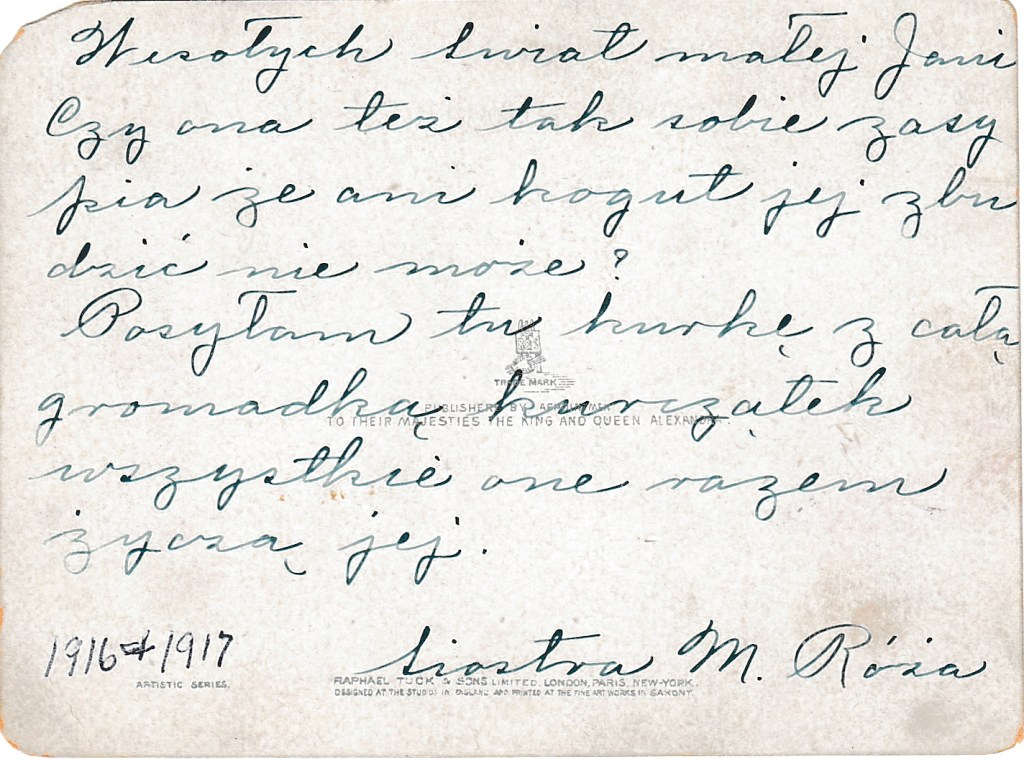 Wesołych Świat małej Jani
Czy ona też tak sobie zasy
pia że ani kogut jej zbu
dzić nie może?
Posyłam tu kurkę z całą
TRADE MARK
gromadką kurcząłek
PUBLISHERS BY
TO THEIR MAJESTIES THE KING AND QUEEN ALEXANDRA.
wszystkie one razem
życzą jej.
1916 1917
Siostra M. Róża
ARTISTIC SERIES.
RAPHAEL TUCK & SONS LIMITED, LONDON, PARIS, NEW-YORK.
DESIGNED AT THE STUDIOS IN ENGLAND AND PRINTED AT THE FINE ART WORKS IN SAXONY.